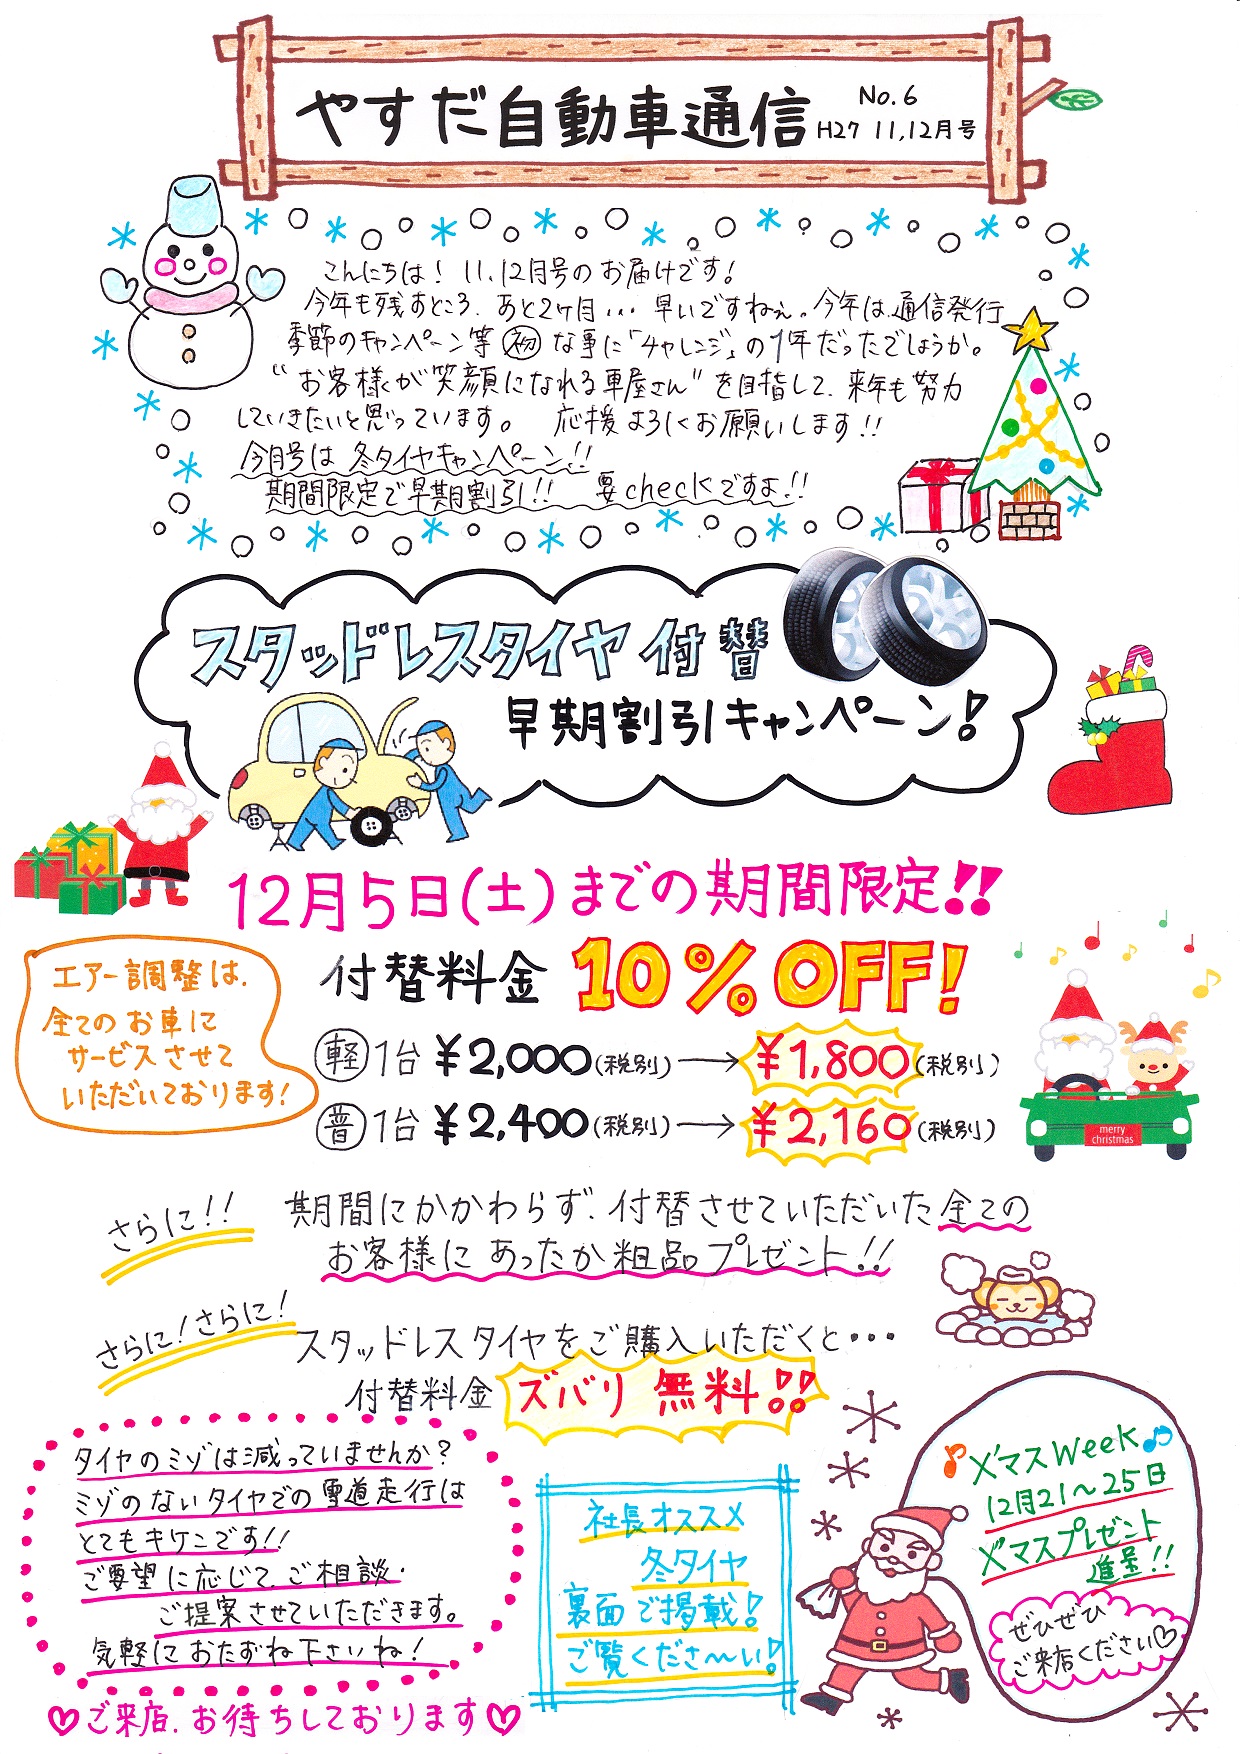 やすだ自動車通信
No.6
H27 11,12月号
こんにちは! 11.12月号のお届けです!
今年も残すところ、あと2ヶ月… 早いですねぇ。今年は、通信発行
季節のキャンペーン等 初 な事に「チャレンジ」の1年だったでしょうか。
"お客様が笑顔になれる車屋さん"を目指して、来年も努力
していきたいと思っています。 応援よろしくお願いします!!
今月号は 冬タイヤキャンペーン!!
期間限定で早期割引!! 要checkですよ!!
スタッドレスタイヤ付替
早期割引キャンペーン!
12月5日(土)までの期間限定!!
エアー調整は、
全てのお車に
サービスさせて
いただいております!
付替料金 10%OFF!
軽 1台 ¥2,000(税別)→¥1,800(税別)
普 1台 ¥2,400(税別)→¥2,160(税別)
merry
christmas
さらに!! 期間にかかわらず、付替させていただいた全ての
お客様に あったか粗品プレゼント!!
さらに!さらに! スタッドレスタイヤをご購入いただくと・・・
付替料金 ズバリ 無料!!
タイヤのミゾは減っていませんか?
ミゾのないタイヤでの雪道走行は
とてもキケンです!!
ご要望に応じて、ご相談・
ご提案させていただきます。
気軽におたずね下さいね!
♡ご来店、お待ちしております♡
社長オススメ
冬タイヤ
裏面で掲載!
ご覧くださ〜い!
♪X'マスWeek♫
12月21〜25日
X'マスプレゼント
進呈!!
ぜひぜひ
ご来店ください♡